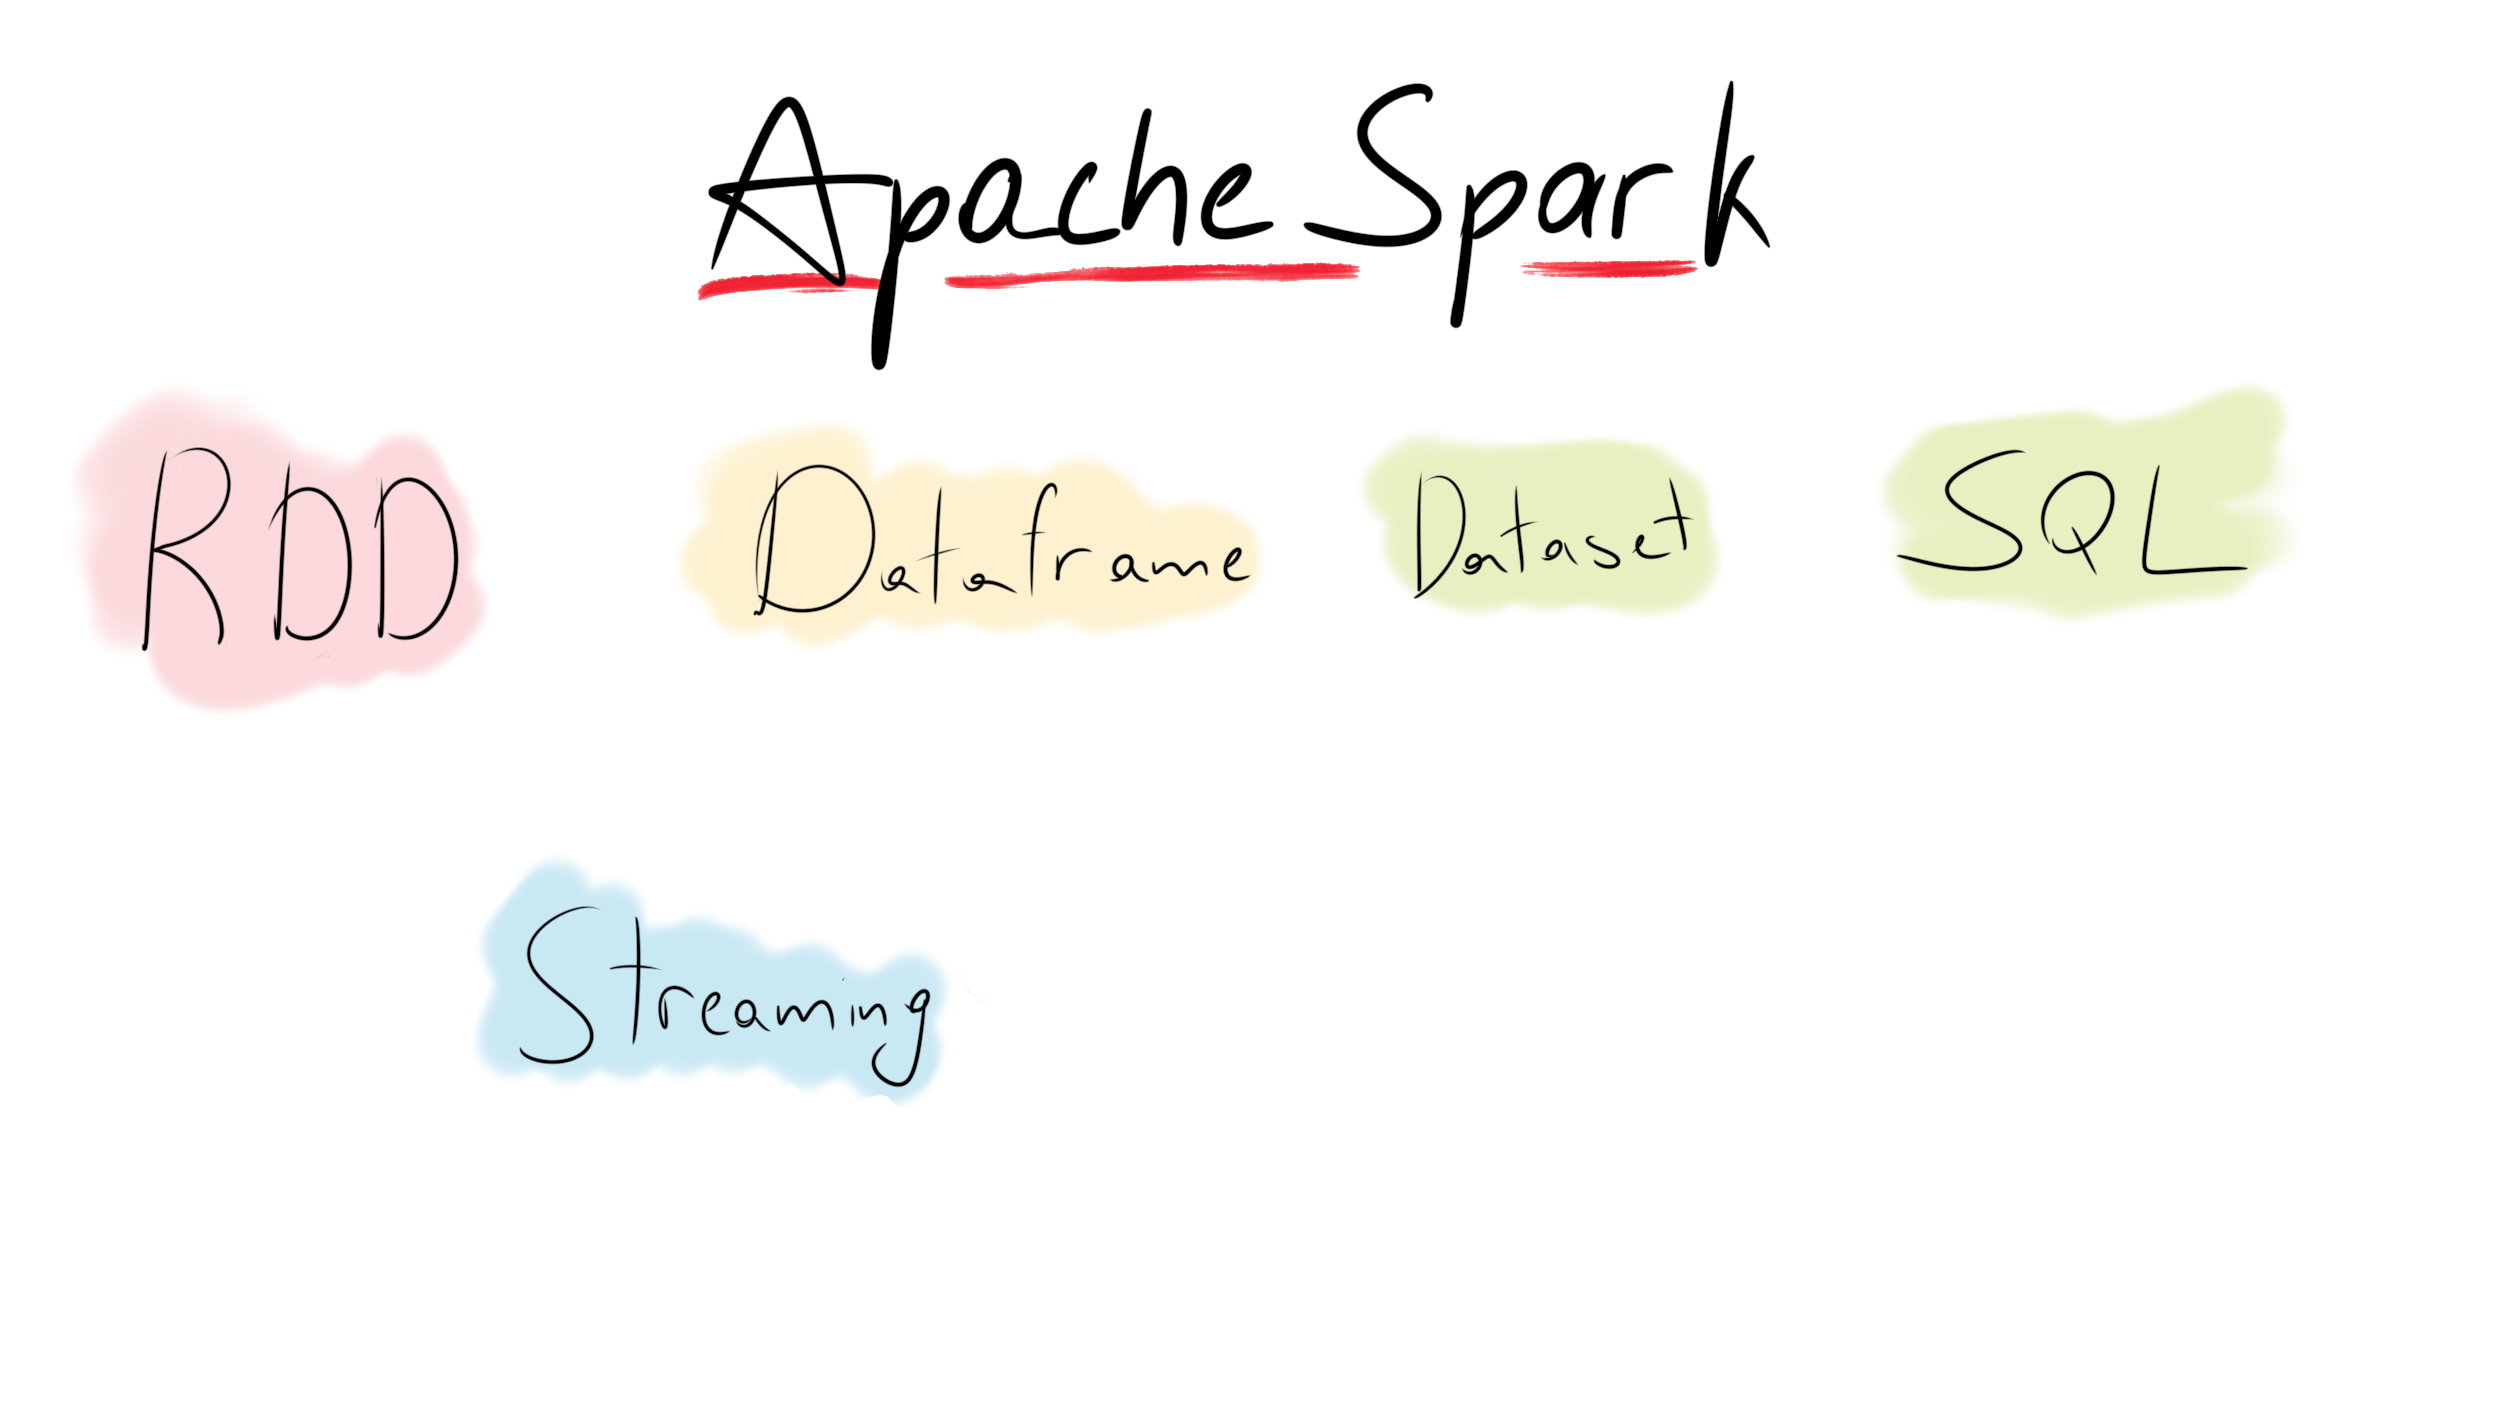 Apache Spark
RDD Dataframe Dataset SQL
Streaming